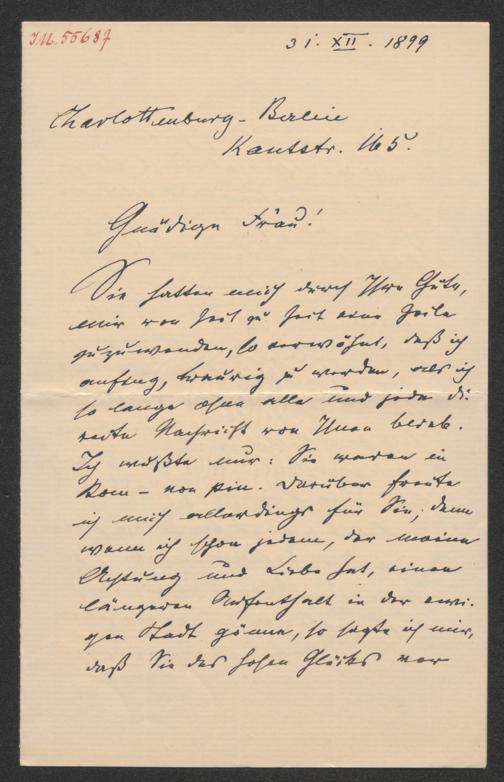 J.N. 55687
31. XII. 1899
Charlottenburg-Berlin
Kantstr. 165.
Gnädige Frau!
Sie hatten mich durch Ihre Güte,
mir von Zeit zu Zeit eine Zeile
zuzuwenden, so verwöhnt, daß ich
anfing, traurig zu werden, als ich
so lange ohne alle und jede di-
recte Nachricht von Ihnen blieb.
Ich wußte nur: Sie waren in
Rom – von Darüber freute
ich mich allerdings für Sie; denn
wenn ich schon jedem, der meine
Achtung und Liebe hat, einen
längeren Aufenthalt in der ewi-
gen Stadt gönne, so sagte ich mir,
daß Sie des hohen Glücks vor